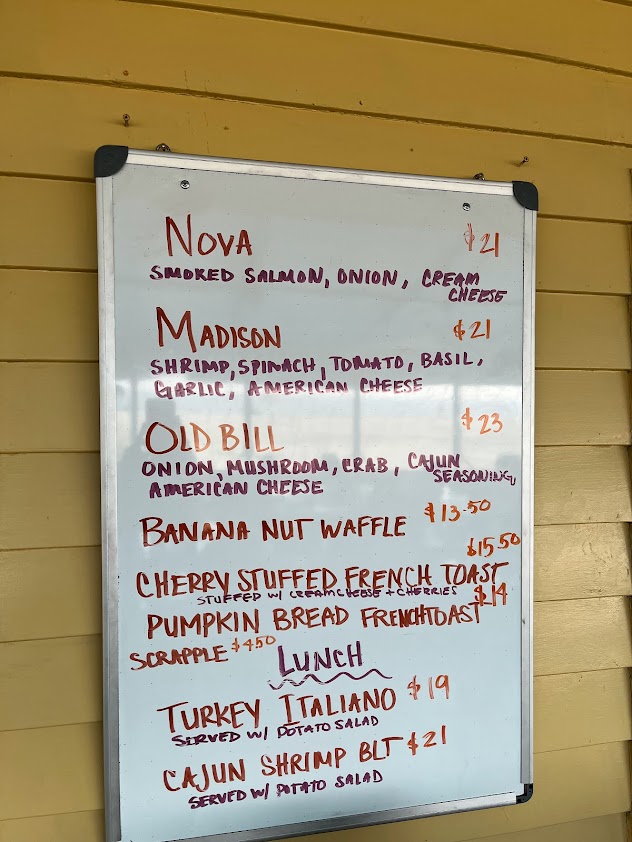 NOVA $21
SMOKED SALMON, ONION, CREAM
CHEESE
MADISON $21
SHRIMP, SPINACH, TOMATO, BASIL,
GARLIC, AMERICAN CHEESE
OLD BILL $23
ONION, MUSHROOM, CRAB, CAJUN
SEASONING
AMERICAN CHEESE
BANANA NUT WAFFLE $13.50
CHERRY STUFFED FRENCH TOAST $15.50
STUFFED W/ CREAMCHEESE + CHERRIES
PUMPKIN BREAD FRENCHTOAST $14
SCRAPPLE $4.50
LUNCH
TURKEY ITALIANO $19
SERVED W/ POTATO SALAD
CAJUN SHRIMP BLT $21
SERVED W/ POTATO SALAD